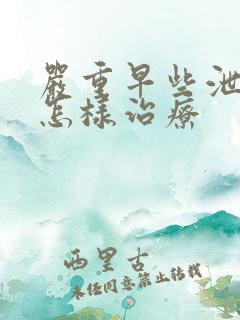 嚴重早些泄
怎樣治療
西里古
未经同意禁止转载